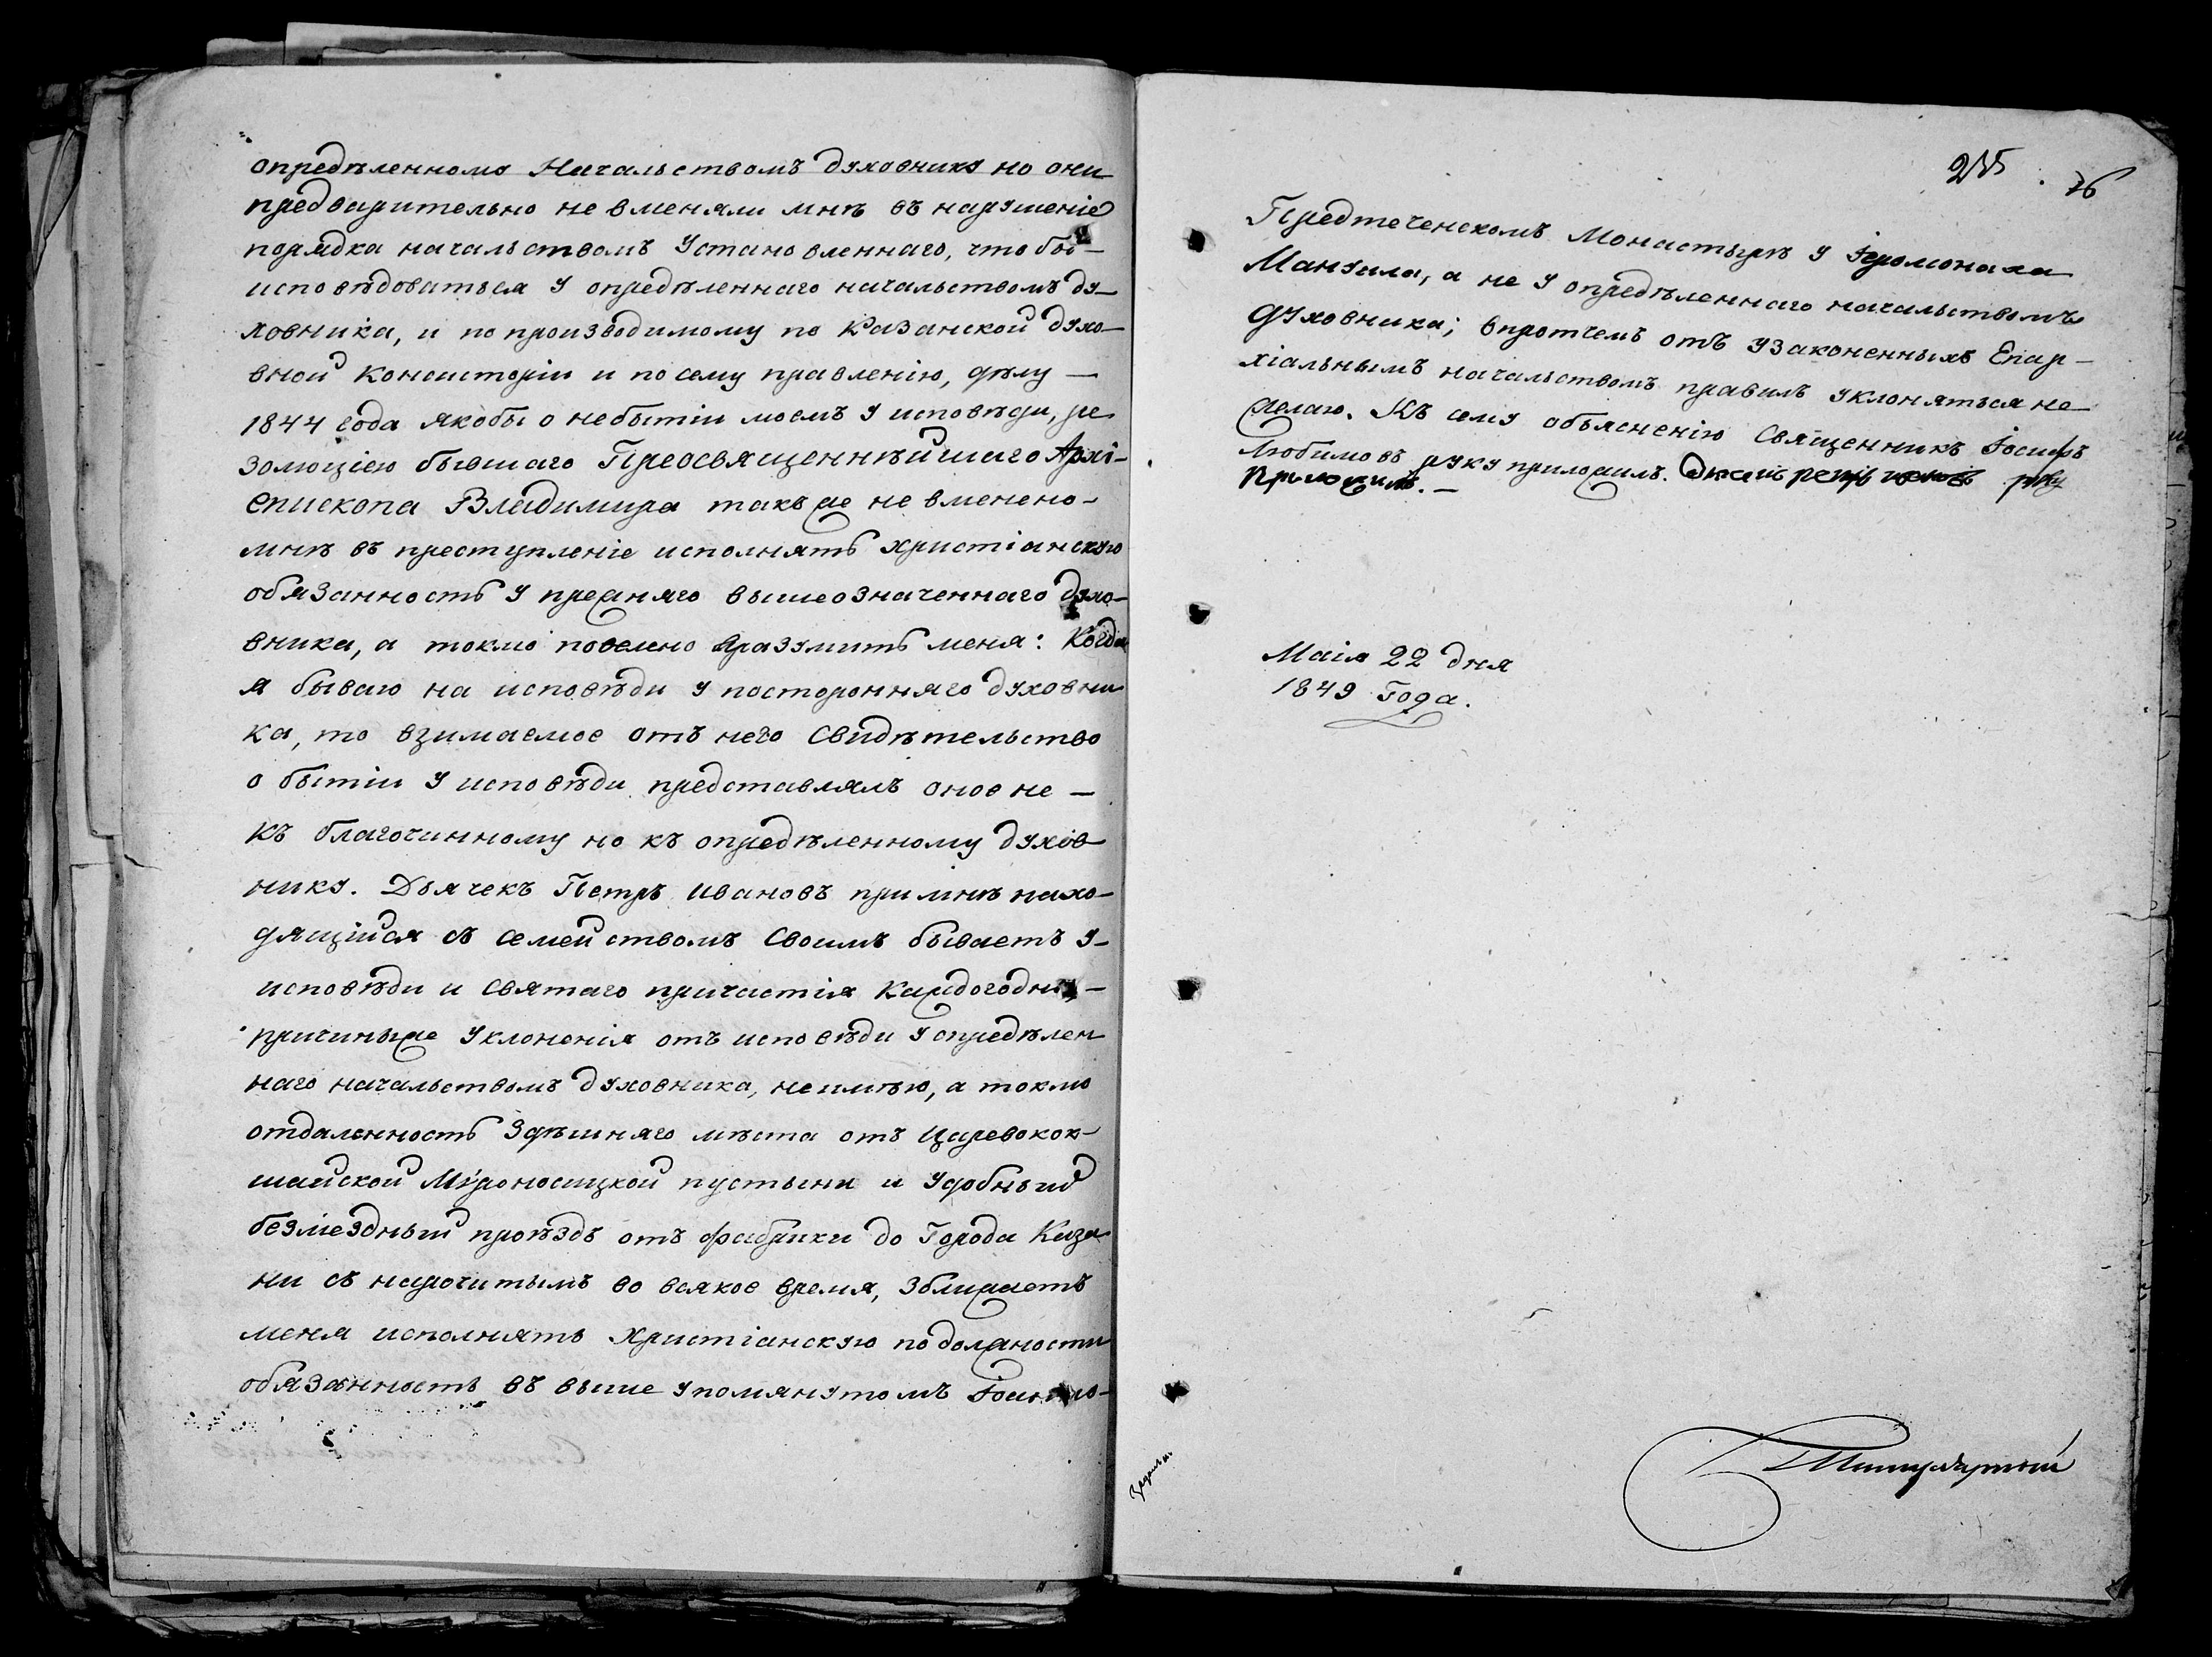 опредѣленному Начальствомъ духовнику но они
предварительно не вменяли мнѣ въ нарушеніе
порядка начальствомъ установленнаго, что бы
исповѣдоваться у опредѣленнаго начальствомъ ду-
ховника, и по производимому по Казанской духо-
вной Консисторіи и по сему правленію, дѣлу —
1844 года якобы о небытіи моемъ у исповѣди, ре
золюціею бывшаго Преосвященнѣйшаго Архі-
епископа Владимира такъ же не вменено-
мнѣ въ преступленіе исполнять христіанскую
обязанность у прежняго вышеозначеннаго духо-
вника, а токмо повелено вразумить меня: Когда
я бываю на исповѣди у посторонняго духовни
ка, то взимаемое отъ него свидѣтельство
о бытіи у исповѣди представлялъ оное не —
къ благочинному но къ опредѣленному духов
нику. Дьячекъ Петръ Ивановъ при мнѣ нахо-
дящійся съ семействомъ своимъ бываетъ у-
исповѣди и святаго причастія каждогодно, —
причины же уклоненія отъ исповѣди у опредѣлен
наго начальствомъ духовника, не имѣю, а токмо
отдаленность здѣшняго мѣста отъ Царевокок-
шайской Мѵроносицкой пустыни и удобный
безмездный проѣздъ отъ фабрики до Города Каза
ни съ нарочитымъ во всякое время, зближаетъ
меня исполнять христіанскую по должности
обязанность въ выше упомянутомъ Іоанно-
235. 76
Предтеченскомъ Монастырѣ у Іеромонаха
Мануила, а не у опредѣленнаго начальствомъ
духовника; впротчемъ отъ узаконенныхъ Епар-
хіальнымъ начальствомъ правилъ уклоняться не
желаю. Къ сему объясненію Священникъ Іосифъ
Любимовъ руку приложилъ. руку
приложилъ. —
Маія 22 дня
1849 Года.
Титулярный